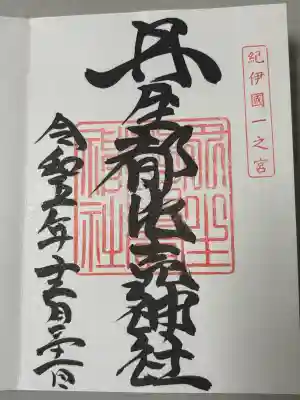 紀伊國一之宮
丹生都比売神社
令和五年十二月